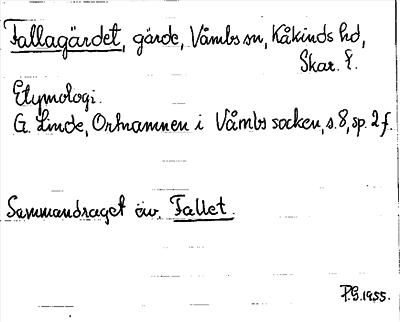 Fallagärdet, gärde, Våmbs sn, Kåkinds hd,
Skar. l.
Etymologi.
G. Linde, Ortnamnen i Våmbs socken, s. 8, sp. 2 f.
Sammandraget äv. Fallet.
P.G. 1955.